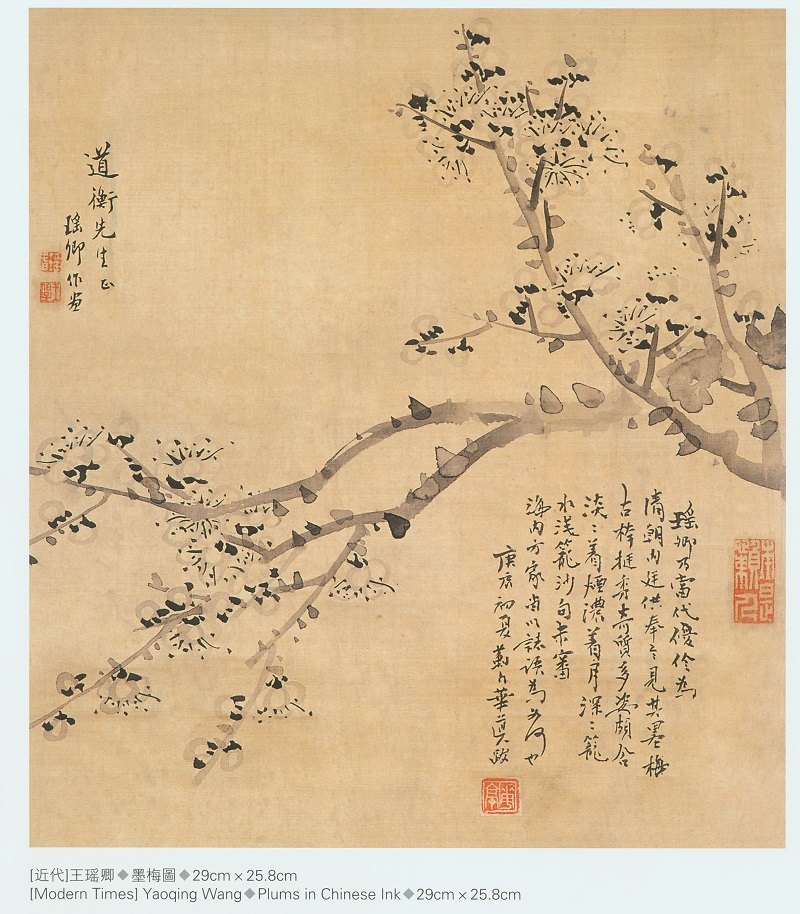 道衡先生正
瑶卿作画
瑶卿乃當代優伶為
清朝内廷供奉今見其墨梅
古榦挺秀奇質多姿頗合
淡淡着煙濃着月深深籠
水浅籠沙句未審
海内方家尚以誌语為如何也
庚辰初夏
跋
[近代]王瑶卿◆墨梅圖◆29cm×25.8cm
[Modern Times] Yaoqing Wang◆Plums in Chinese Ink◆29cm×25.8cm